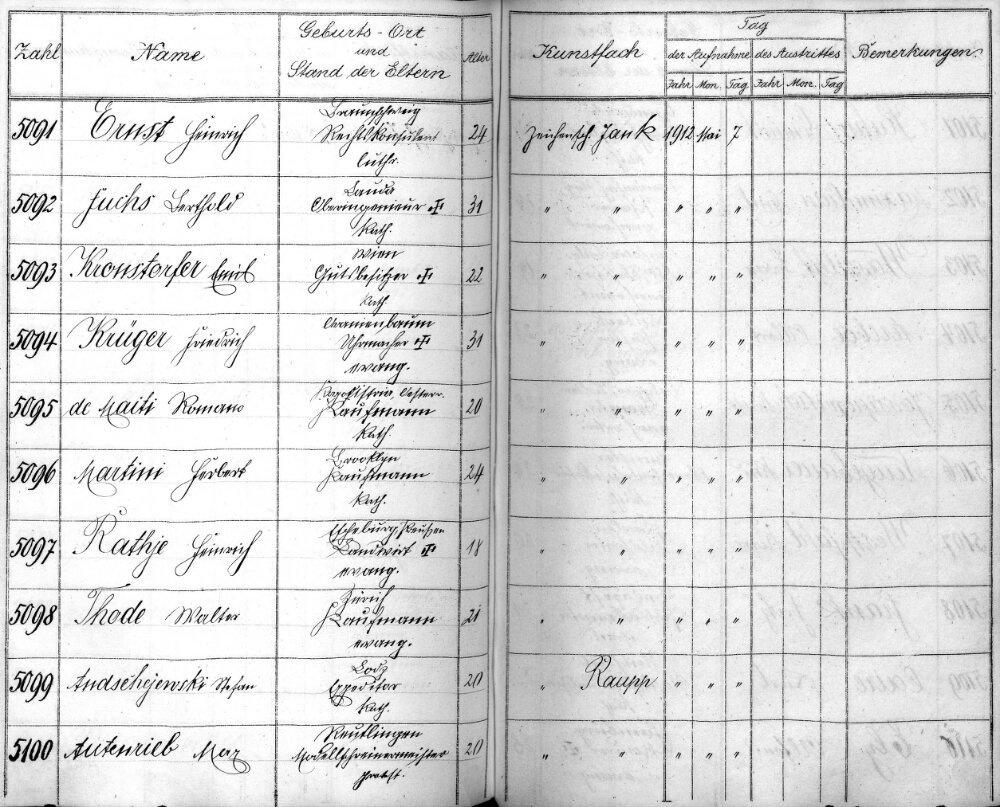 Zahl Name Geburts-Ort und Stand der Eltern Alter Kunstfach Tag der Aufnahme des Austrittes Bemerkungen
Jahr Mon. Tag Jahr Mon. Tag
Braunschweig
5091 Ernst Heinrich Rechtskonsulent 24 Zeichensch. Jank 1912 Mai 7
luthr.
Lauda
5092 Fuchs Berthold Oberingenieur ✠ 31 " " " " "
Kath.
Wien
5093 Kronstorfer Emil Gutsbesitzer ✠ 22 " " " " "
Kath.
5094 Krüger Friedrich Uhrmacher ✠ 31 " " " " "
evang.
Oesterr.
5095 de Maiti Romano Kaufmann 20 " " " " "
Kath.
Brooklyn
5096 Martini Herbert Kaufmann 24 " " " " "
Kath.
Preußen
5097 Rathje Heinrich Landwirt ✠ 18 " " " " "
evang.
Zürich
5098 Thode Walter Kaufmann 21 " " " " "
evang.
Lodz
5099 Andschejewski Stefan Expeditor 20 " Raupp " " "
Kath.
Reutlingen
5100 Autenrieb Max Modellschreinermeister 20 " " " " "
protst.